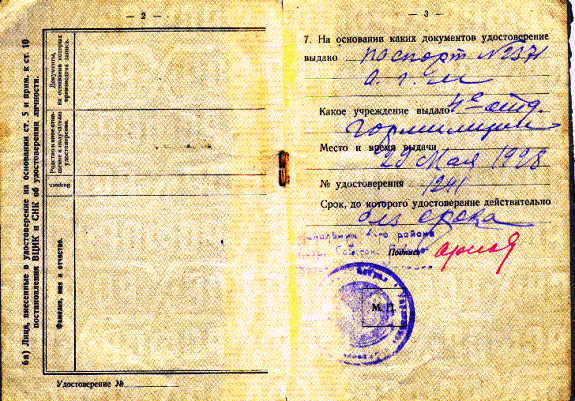 — 2 —
6а) Лица, внесенные в удостоверение на основании ст. 5 и прим. к ст. 10
постановления ВЦИК и СНК об удостоверении личности.
Документы,
на основании которых
произведена запись.
Родство или отно-
шение к получателю
удостоверения.
Возраст.
Фамилия, имя и отчество.
Удостоверение №
— 3 —
7. На основании каких документов удостоверение
выдано паспорт №2371
Какое учреждение выдало 4е отд.
Гормилиции
Место и время выдачи
29 Мая 1928
№ удостоверения 1241
Срок, до которого удостоверение действительно
без срока
района
Подпись
М. П.